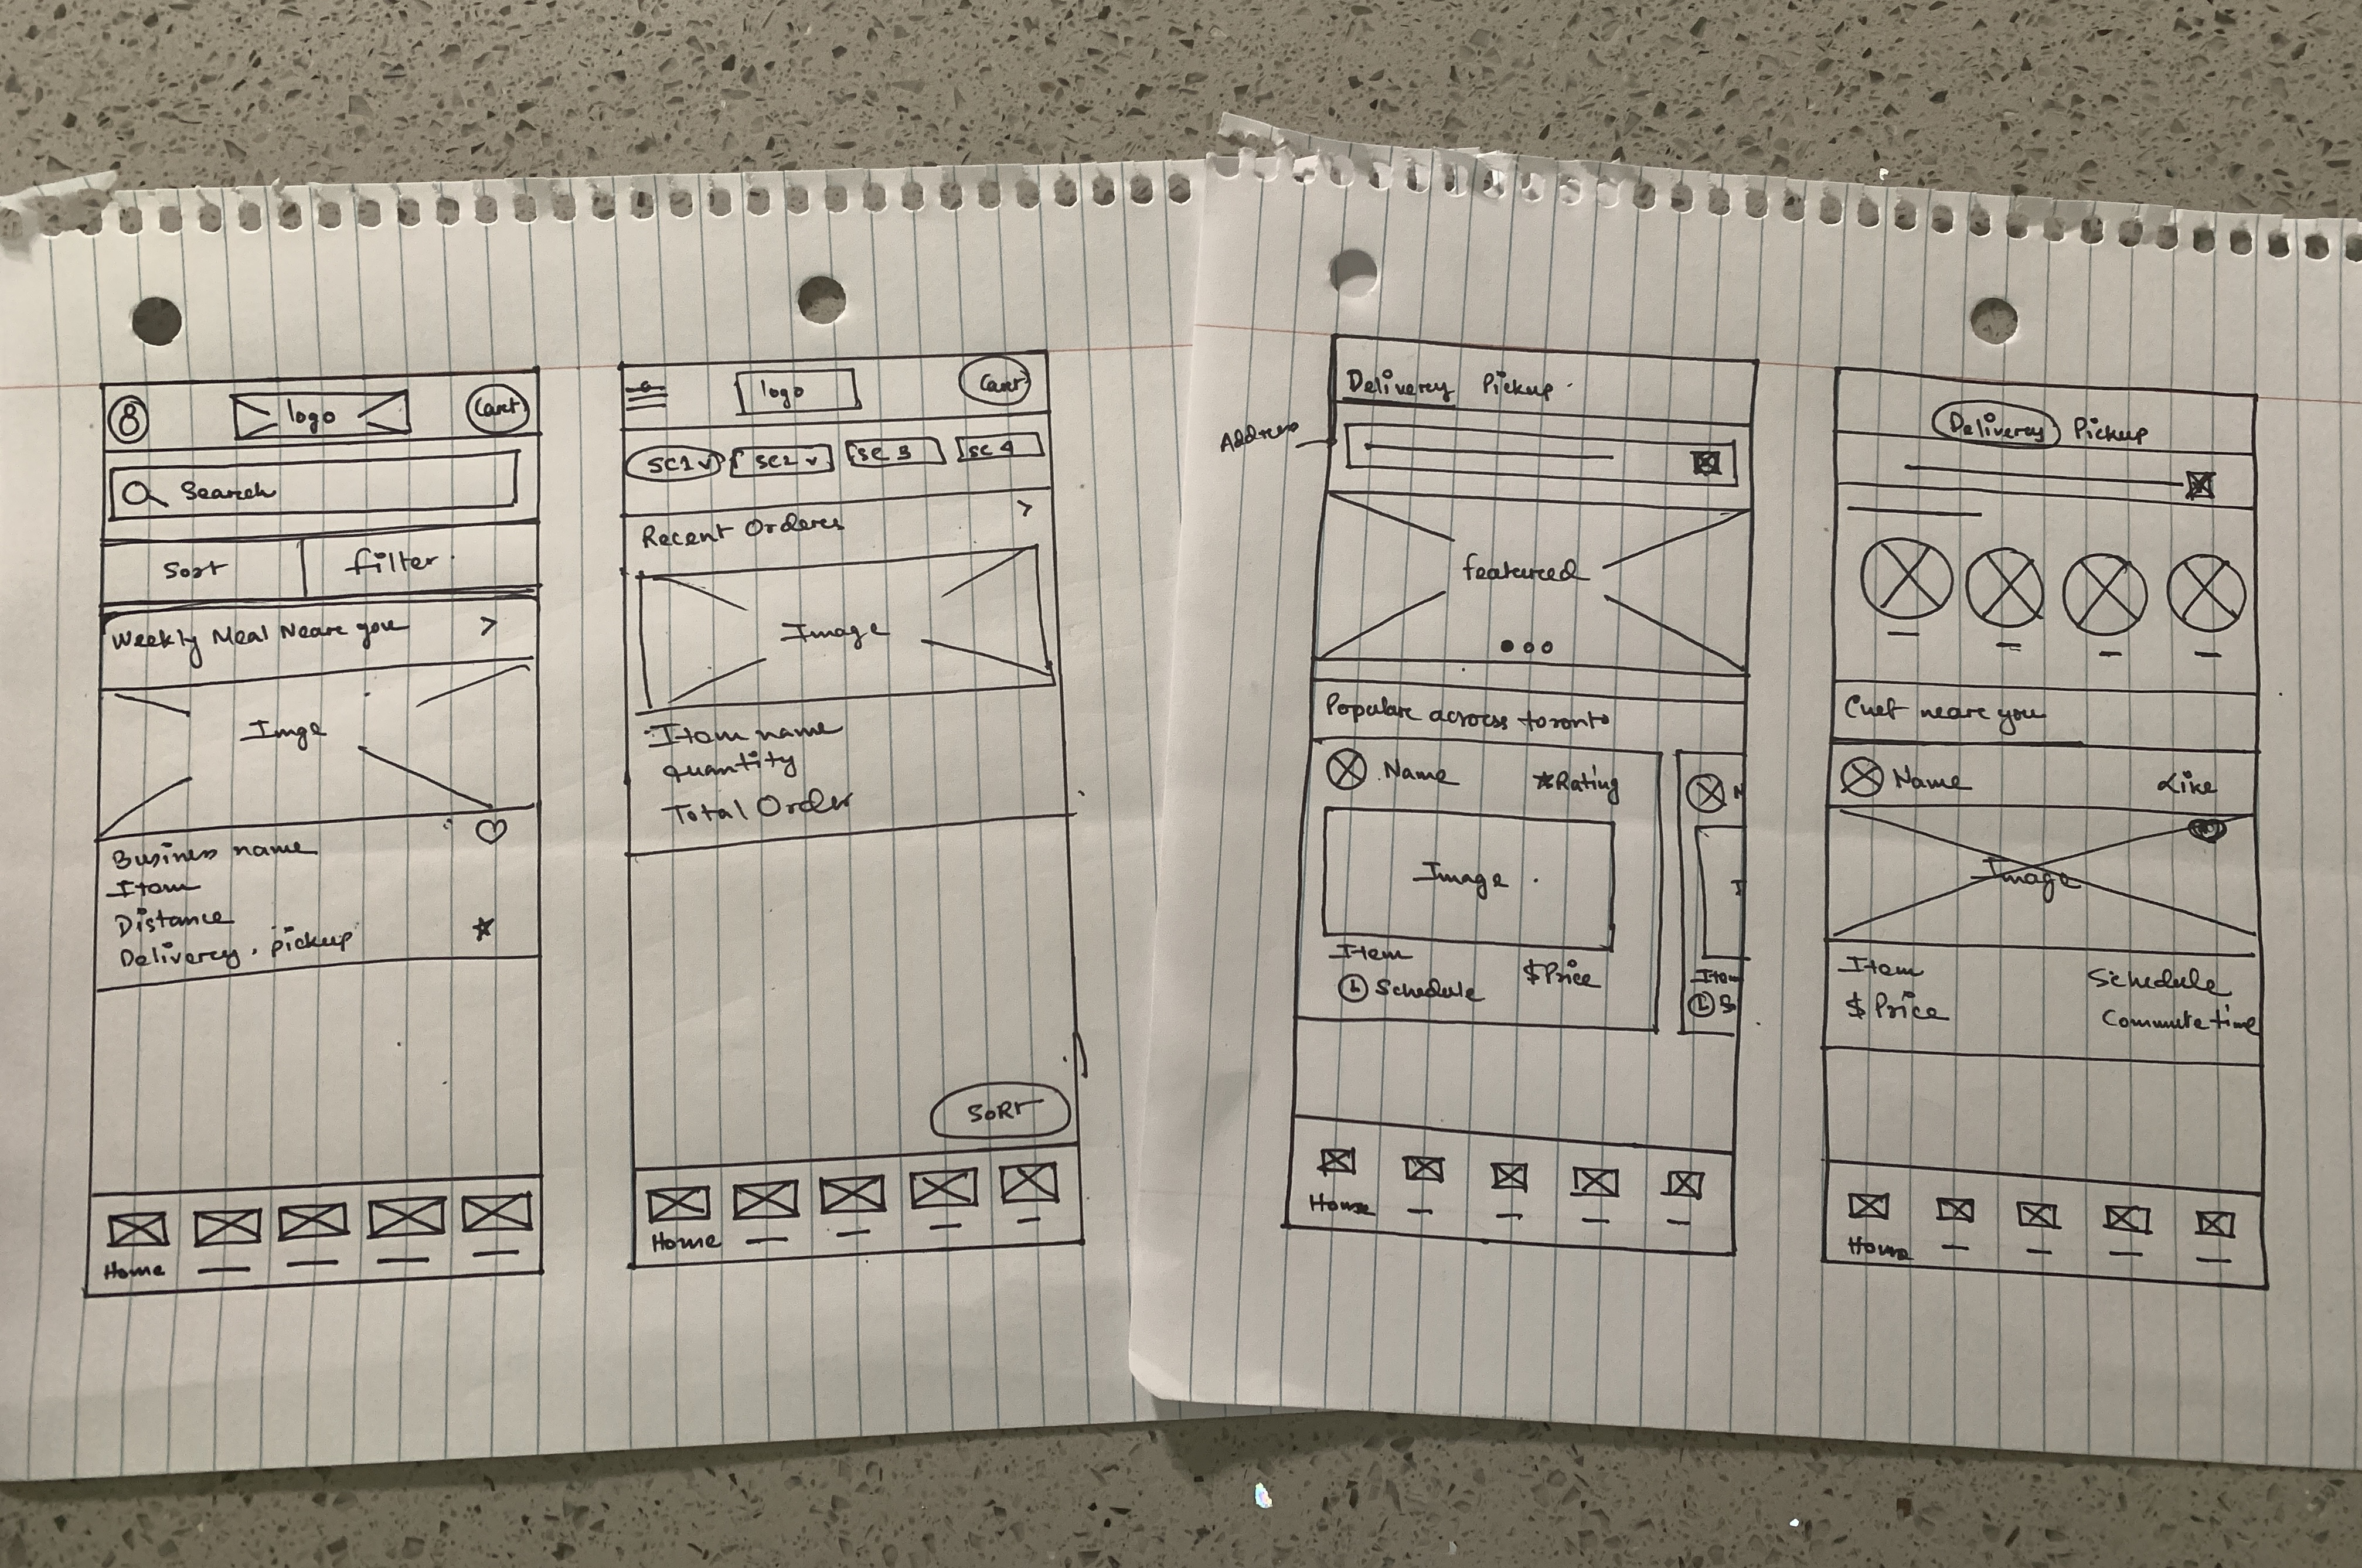 logo
Cart
Search
Sort
filter
Weekly Meal Neare you >
Imge
Business name
Item
Distance
Delivery . pickup
Home
logo
Cart
SC1 v SC2 v SC 3 SC 4
Recent Orderes >
Image
Item name
Quantity
Total Order
SORT
Home
Delivery Pickup
Address
featured
Popular across toronto
Name ★Rating
N
Image
I
Item
$Price
Schedule
Item
S
Home
Delivery Pickup
Chef neare you
Name Like
Image
Item Schedule
$ Price Commute time
Home